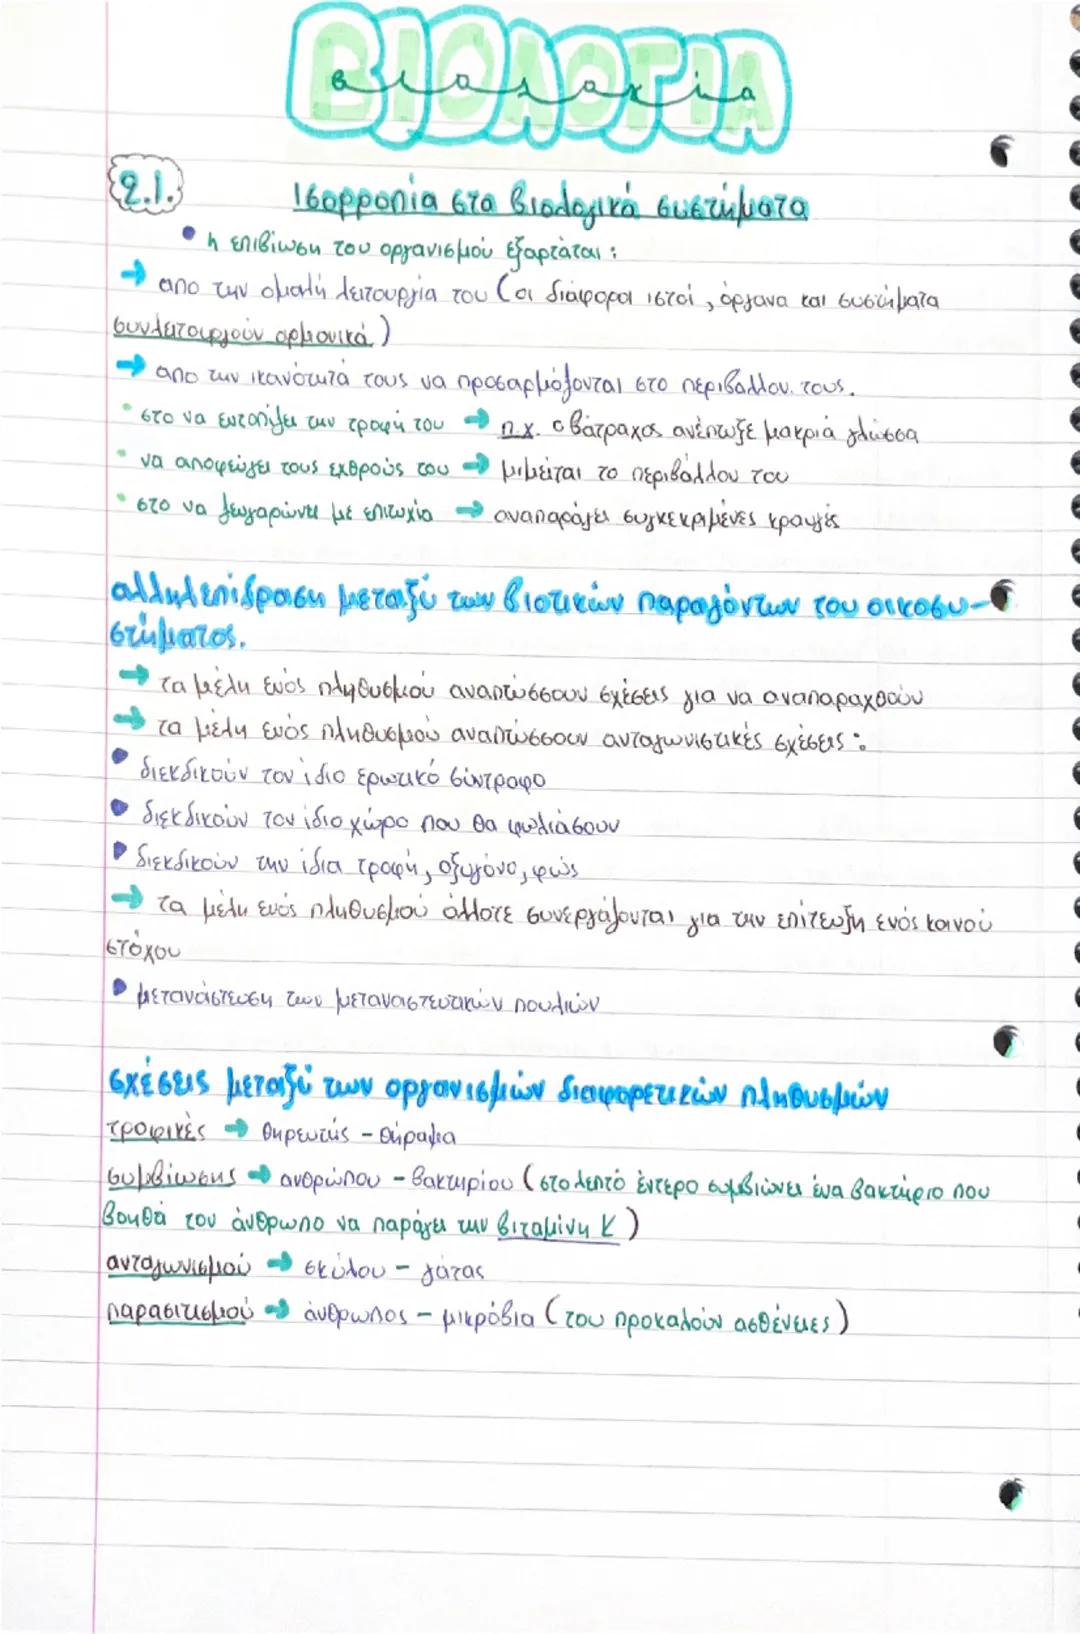 ΒΙΟΛΟΓΙΑ
βιολογία
2.1.
Ισορροπία στα βιολογικά συστήματα
• η επιβίωση του οργανισμού εξαρτάται :
→ απο την ομαλή λειτουργία του (οι διάφοροι ιστοί, όργανα και συστήματα
συνλειτουργούν αρμονικά)
→ απο την ικανότητά τους να προσαρμόζονται στο περιβάλλον τους.
• στο να εντοπίζει την τροφή του → π.χ. ο βάτραχος ανέπτυξε μακριά γλώσσα
• να αποφεύγει τους εχθρούς του → μιμείται το περιβάλλον του
• στο να ζευγαρώνει με επιτυχία → αναπαράγει συγκεκριμένες κραυγές
αλληλεπίδραση μεταξύ των βιοτικών παραγόντων του οικοσυ-
στήματος.
→ τα μέλη ενός πληθυσμού αναπτύσσουν σχέσεις για να αναπαραχθούν
→ τα μέλη ενός πληθυσμού αναπτύσσουν ανταγωνιστικές σχέσεις :
• διεκδικούν τον ίδιο ερωτικό σύντροφο
• διεκδικούν τον ίδιο χώρο που θα φωλιάσουν
• διεκδικούν την ίδια τροφή, οξυγόνο, φώς
→ τα μέλη ενός πληθυσμού άλλοτε συνεργάζονται για την επίτευξη ενός κοινού
στόχου
• μετανάστευση των μεταναστευτικών πουλιών
σχέσεις μεταξύ των οργανισμών διαφορετικών πληθυσμών
τροφικές → θηρευτής - θήραμα
συμβίωσης → ανθρώπου - βακτηρίου (στο λεπτό έντερο συμβιώνει ένα βακτήριο που
βοηθά τον άνθρωπο να παράγει την βιταμίνη Κ)
ανταγωνισμού → σκύλου - γάτας
παρασιτισμού → άνθρωπος - μικρόβια (του προκαλούν ασθένειες)